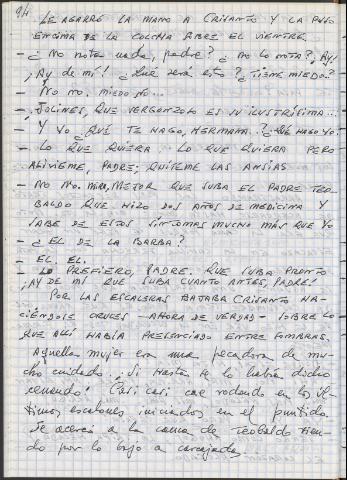 LE AGARRÉ LA MANO A CRISANTO Y LA PUSO
ENCIMA DE LA COLCHA SOBRE EL VIENTRE.
- ¿NO NOTA NADA, PADRE? ¿NO LO NOTA? ¡AY!
¡AY DE MÍ! ¿QUÉ SERÁ ESTO? ¿TIENE MIEDO?
- NO NO. MIEDO NO...
- JOLINES, QUE VERGONZOSO ES SU ILUSTRÍSIMA...
- Y YO ¿QUÉ TE HAGO, HERMANA? ¿QUÉ HAGO YO?
- LO QUE QUIERA LO QUE QUIERA PERO
ALIVIEME, PADRE; QUITEME LAS ANSIAS
- NO NO. MIRA, MEJOR QUE SUBA EL PADRE TEO-
BALDO QUE HIZO DOS AÑOS DE MEDICINA Y
SABE DE ESTOS SINTOMAS MUCHO MÁS QUE YO
- ¿EL DE LA BARBA?
- EL. EL.
- LO PREFIERO, PADRE. QUE SUBA PRONTO
¡AY DE MÍ QUE SUBA CUANTO ANTES, PADRE!
POR LAS ESCALERAS BAJABA CRISANTO HA-
CIÉNDOSE CRUCES - AHORA DE VERDAD - SOBRE LO
QUE ALLÍ HABÍA PRESENCIADO ENTRE SOMBRAS.
Aquella mujer era una pecadora de mu-
cho cuidado. ¡Si hasta se lo había dicho
cenando! Casi casi cae rodando en los úl-
timos escalones iniciados en el pasillo.
Se acercó a la cama de Teobaldo rien-
do por lo bajo a carcajadas